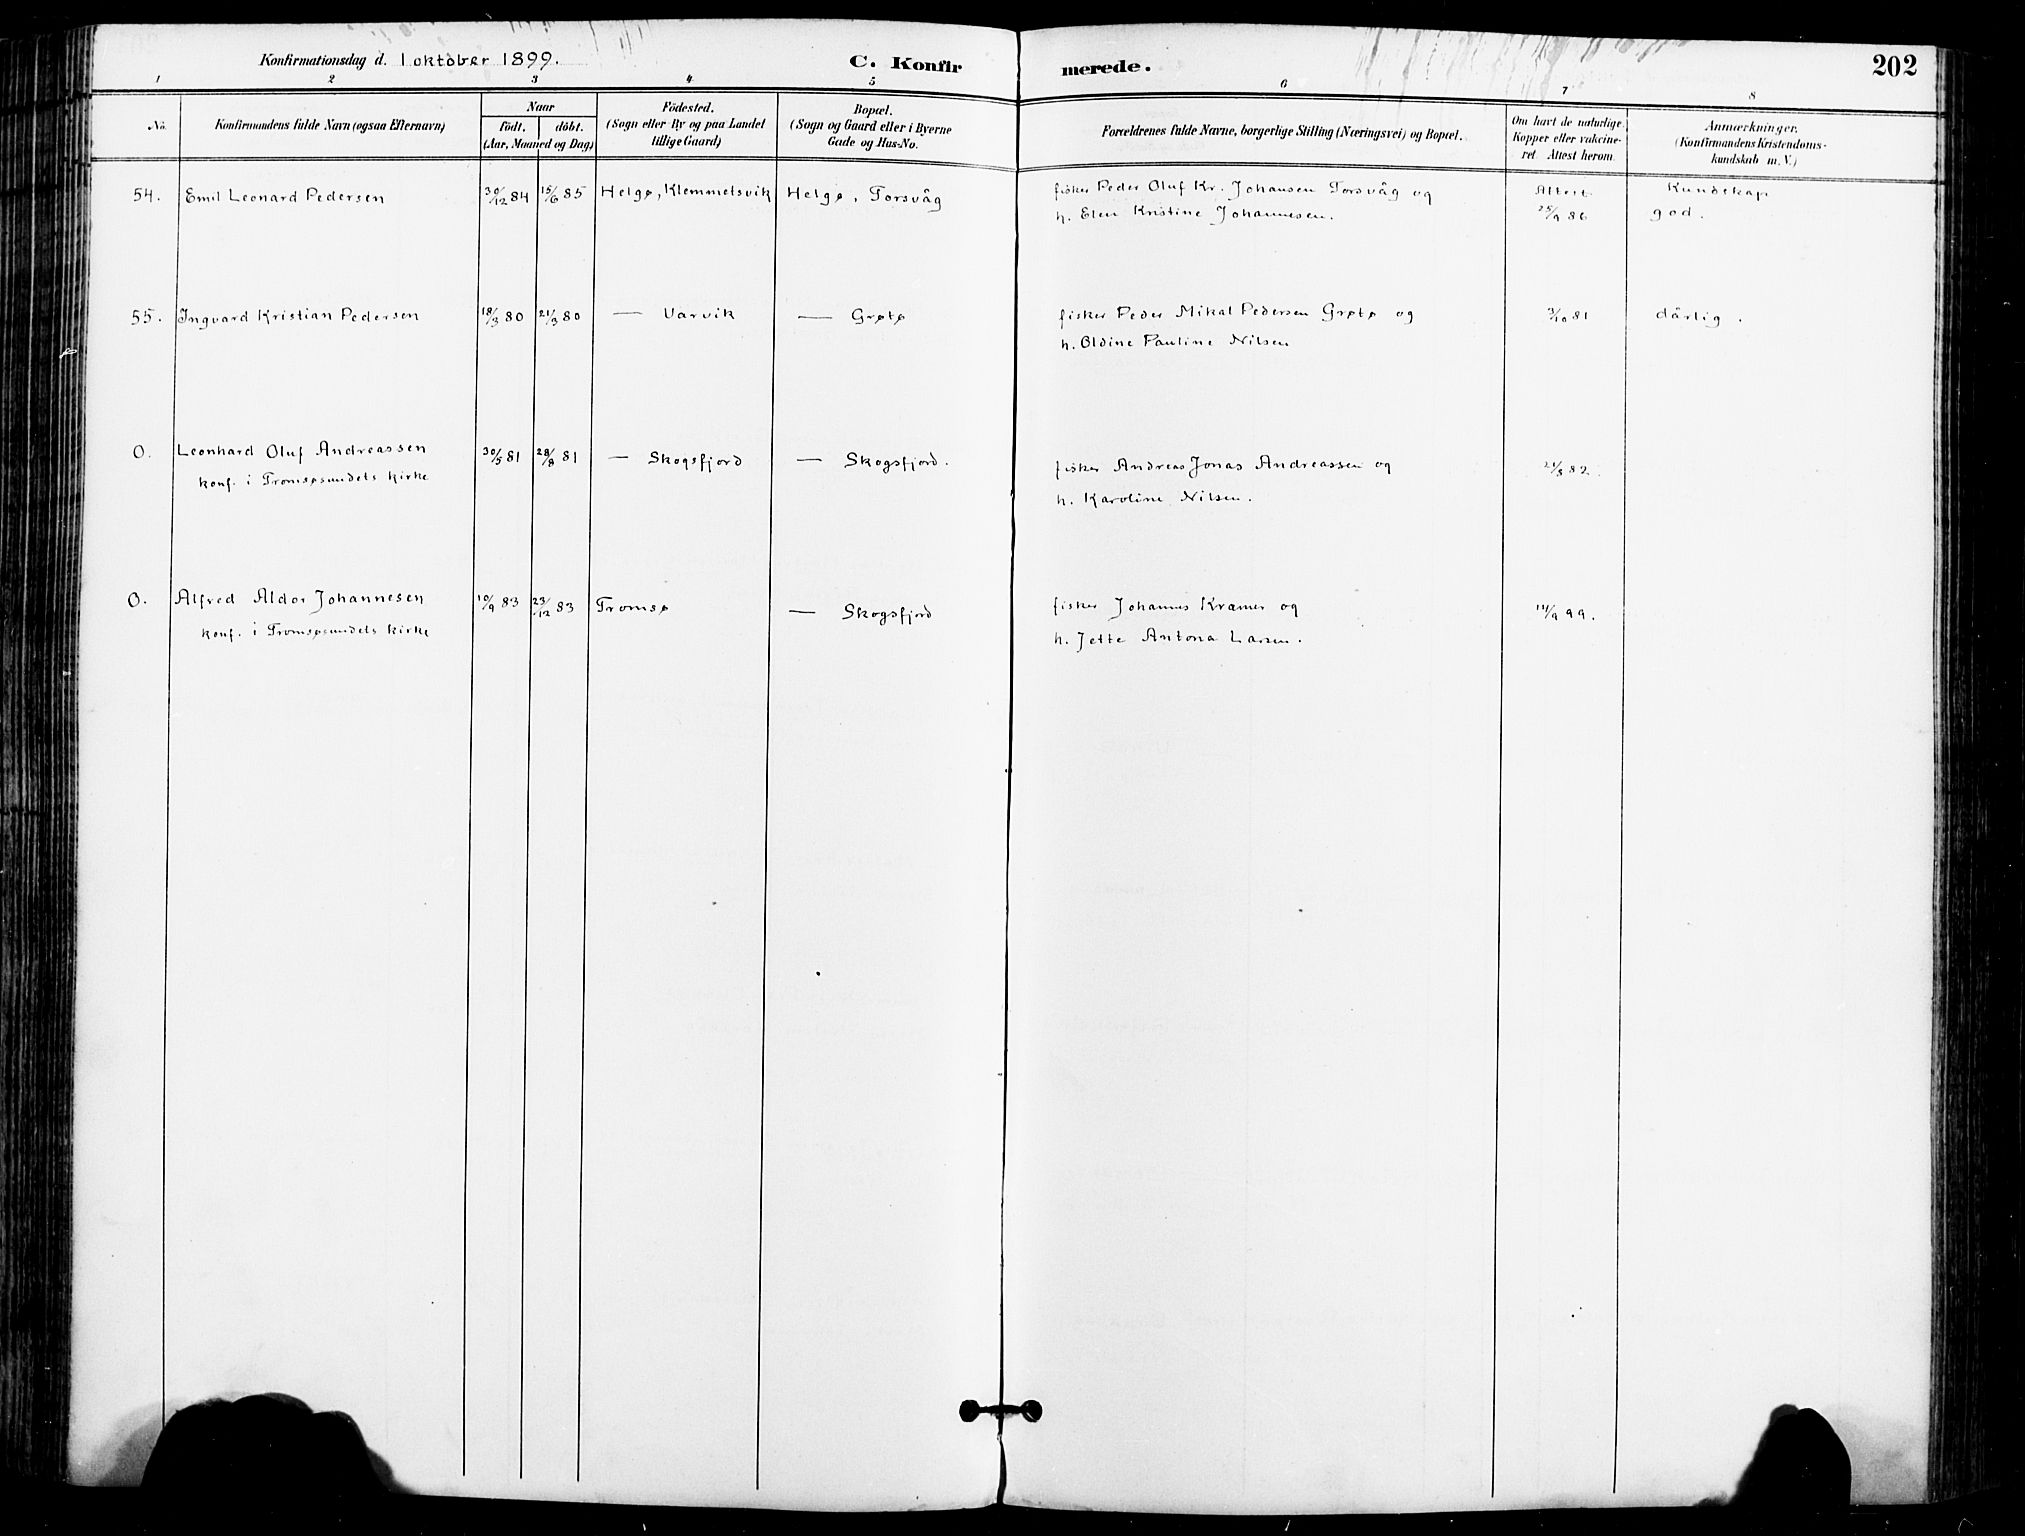 Konfirmationsdag d. 1 oktober 1899.
C. Konfirmerede.
202
1 2 3 4 5 6 7 8
No.
Konfirmandens fulde Navn (ogsaa Efternavn)
Naar
födt. döbt.
(Aar, Maaned og Dag)
Födested.
(Sogn eller By og paa Landet
tillige Gaard)
Bopæl.
(Sogn og Gaard eller i Byerne
Gade og Hus-No.
Forældrenes fulde Navne, borgerlige Stilling (Næringsvei) og Bopæl.
Om havt de naturlige
Kopper eller vakcine-
ret. Attest herom.
Anmærkninger.
(Konfirmandens Kristendoms-
kundskab m. V.)
54. Emil Leonard Pedersen 30/12 84 15/6 85 Helgø, Klemmetsvik Helgø, Torsvåg fisker Peder Oluf Kr. Johansen Torsvåg og Attest Kundskap
h. Elen Kristine Johannesen. 25/9 86 god.
55. Ingvard Kristian Pedersen 18/3 80 21/3 80 — Varvik — Grøtø fisker Peder Mikal Pedersen Grøtø og 3/10 81 dårlig.
h. Oldine Pauline Nilsen
O. Leonhard Oluf Andreassen 30/5 81 28/8 81 — Skogsfjord — Skogsfjord. fisker Andreas Jonas Andreassen og 21/8 82.
konf. i Tromsøsundets kirke h. Karoline Nilsen.
O. Alfred Aldor Johannesen 10/9 83 23/12 83 Tromsø — Skogsfjord fisker Johannes Kramer og 11/9 99.
konf. i Tromsøsundets kirke h. Jette Antona Larsen.